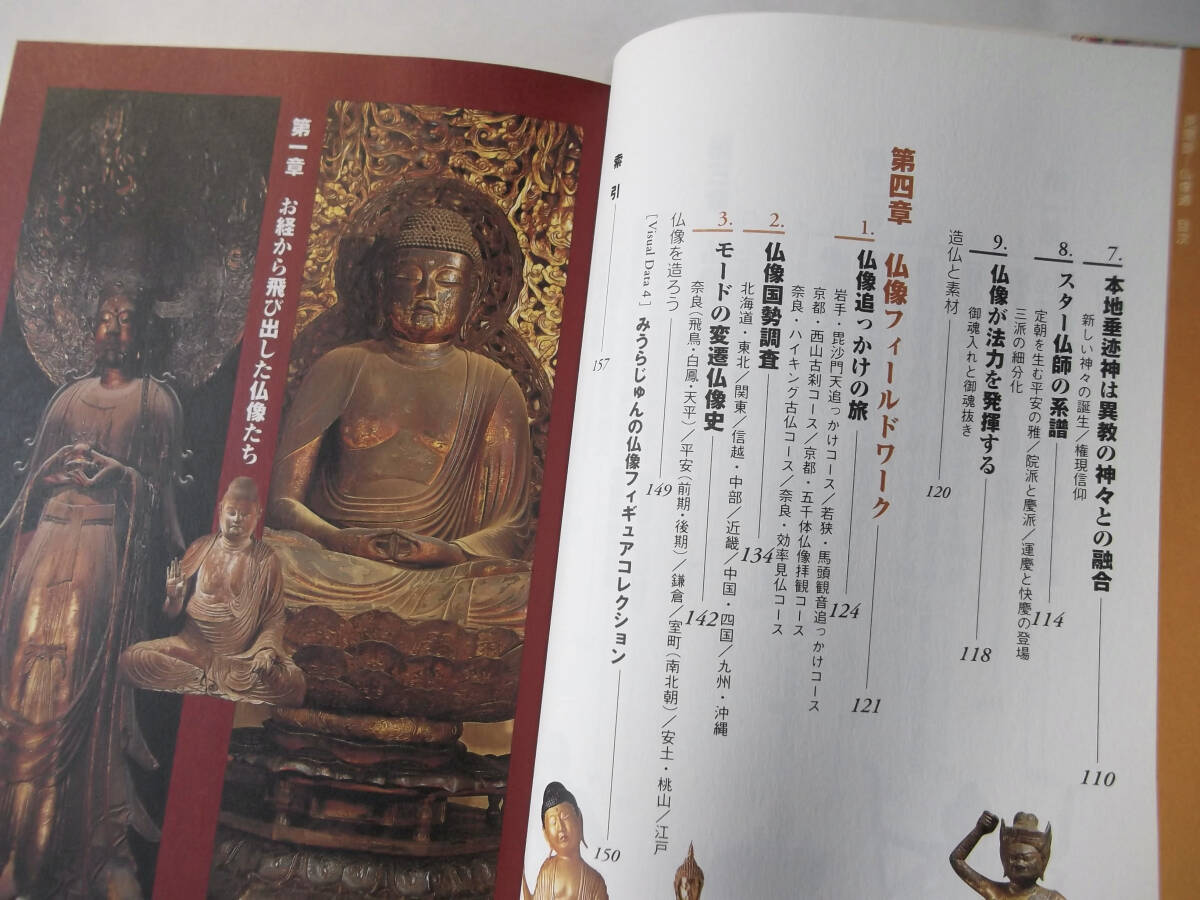 7.
本地垂迹神は異教の神々との融合
110
新しい神々の誕生／権現信仰
8.
スター仏師の系譜
114
定朝を生む平安の雅／院派と慶派／運慶と快慶の登場
三派の細分化
9.
仏像が法力を発揮する
118
御魂入れと御魂抜き
造仏と素材
120
第四章 仏像フィールドワーク
121
1.
仏像追っかけの旅
124
岩手・毘沙門天追っかけコース／若狭・馬頭観音追っかけコース
京都・西山古刹コース／京都・五千体仏像拝観コース
奈良・ハイキング古仏コース／奈良・効率見仏コース
2.
仏像国勢調査
134
北海道・東北／関東／信越・中部／近畿／中国・四国／九州・沖縄
3.
モードの変遷仏像史
142
奈良（飛鳥・白鳳・天平）／平安（前期・後期）／鎌倉／室町（南北朝）／安土・桃山／江戸
仏像を造ろう
149
［Visual Data 4］みうらじゅんの仏像フィギュアコレクション
150
索引
157
第一章 お経から飛び出した仏像たち